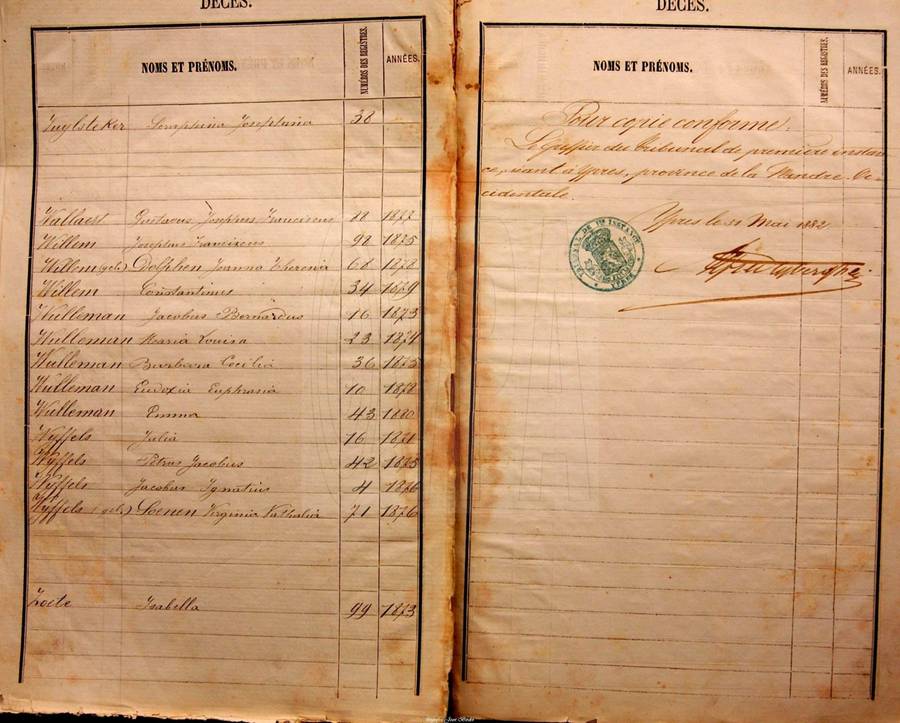 DÉCÈS.
NOMS ET PRÉNOMS.
NUMÉROS DES REGISTRES.
ANNÉES.
38
Wallaert Gustavus Josephus Franciscus 1877
Willem Josephus Franciscus 92 1875
Willem (geb.) Dolphen Joanna Theresia 68 1878
Willem Constantinus 34 1879
Wulleman Jacobus Bernardus 16 1873
Wulleman Maria Louisa 23 1874
Wulleman Barbara Cecilia 36 1875
Wulleman Eudoxia Euphrasia 10 1878
Wulleman Emma 43 1880
Wyffels Julia 16 1871
Wyffels Petrus Jacobus 42 1875
Wyffels Jacobus Ignatius 4 1876
Wyffels (geb.) Loenen Virginia Nathalia 71 1876
Zoete Isabella 99 1873
DÉCÈS.
NOMS ET PRÉNOMS.
NUMÉROS DES REGISTRES.
ANNÉES.
Pour copie conforme.
Le Greffier du tribunal de première instan-
ce, séant à Ypres, province de la Flandre Oc-
cidentale.
Ypres le 31 Mai 1882
TRIBUNAL DE 1re INSTANCE
YPRES